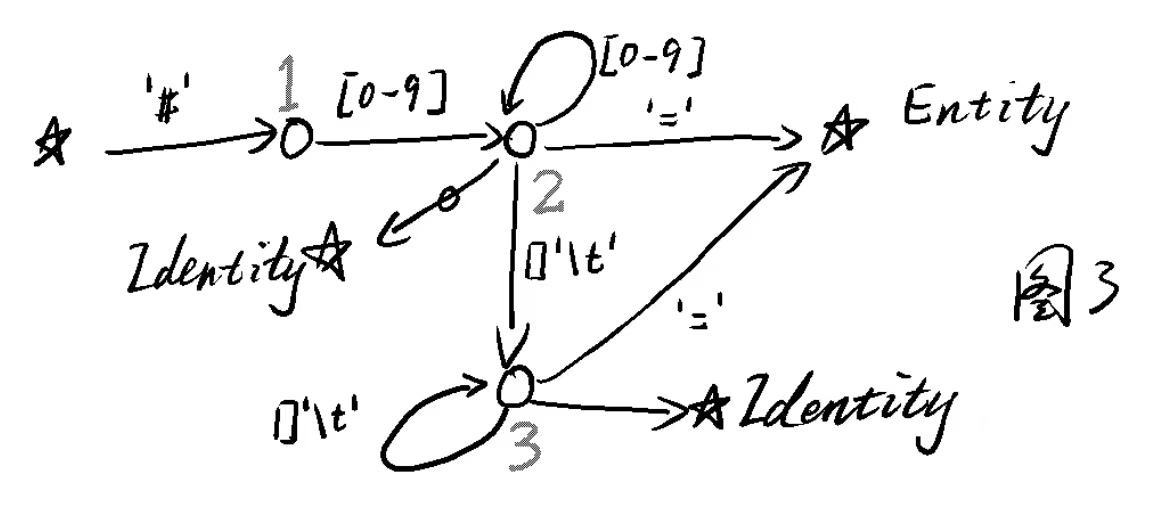 '#'
1
[0-9]
[0-9]
'='
Entity
2
Identity
[]'\t'
'='
图3
[]'\t'
3
Identity